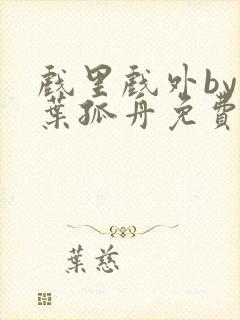 戲里戲外by
葉孤舟免費
葉慈